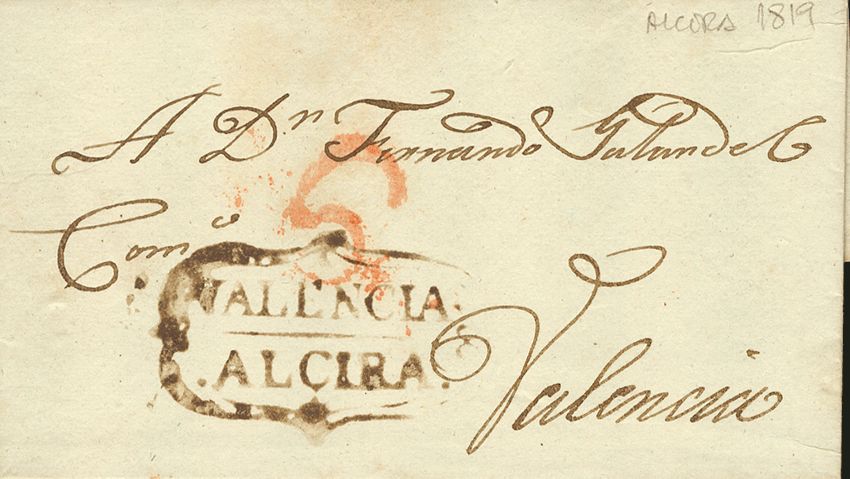 ALCORA 1819
A Dn Fernando Galundel
Como
5
VALENCIA
.ALCIRA.
Valencia